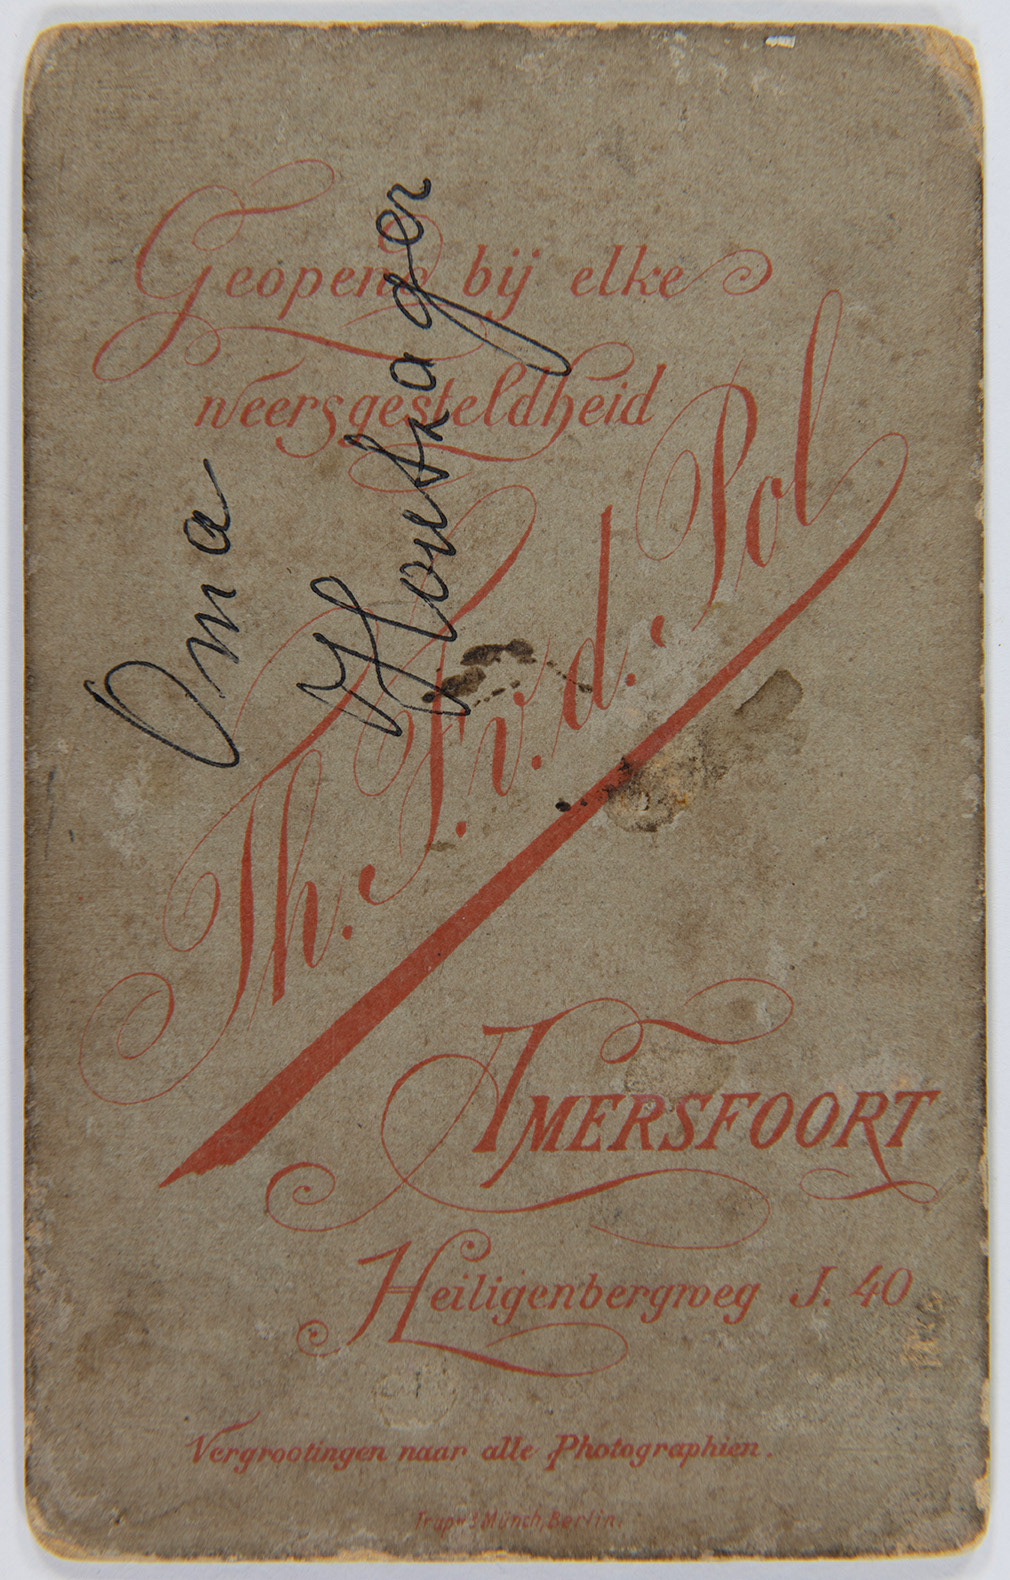 Geopend bij elke
weersgesteldheid
Th. F. v. d. Pol
AMERSFOORT
Heiligenbergweg J. 40
Vergrootingen naar alle Photographien.
Trapp & Münch, Berlin.
Oma
Houtzager